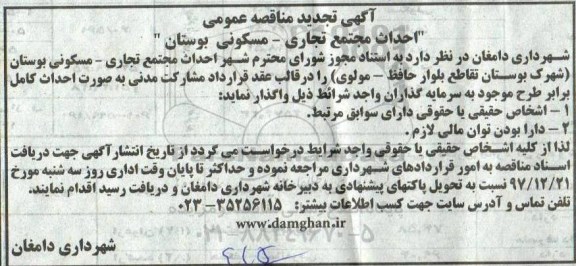 آگهی تجدید مناقصه عمومی
"احداث مجتمع تجاری - مسکونی بوستان "
شهرداری دامغان در نظر دارد به استناد مجوز شورای محترم شهر احداث مجتمع تجاری - مسکونی بوستان
(شهرک بوستان تقاطع بلوار حافظ - مولوی) را در قالب عقد قرارداد مشارکت مدنی به صورت احداث کامل
برابر طرح موجود به سرمایه گذاران واجد شرائط ذیل واگذار نماید:
۱ - اشخاص حقیقی یا حقوقی دارای سوابق مرتبط.
۲ - دارا بودن توان مالی لازم .
لذا از کلیه اشخاص حقیقی یا حقوقی واجد شرایط درخواست می گردد از تاریخ انتشار آگهی جهت دریافت
اسناد مناقصه به امور قراردادهای شهرداری مراجعه نموده و حداکثر تا پایان وقت اداری روز سه شنبه مورخ
۹۷/۱۲/۲۱ نسبت به تحویل پاکتهای پیشنهادی به دبیرخانه شهرداری دامغان و دریافت رسید اقدام نمایند.
تلفن تماس و آدرس سایت جهت کسب اطلاعات بیشتر: ۳۵۲۵۶۱۱۵ - ۰۲۳
www.damghan.ir
شهرداری دامغان